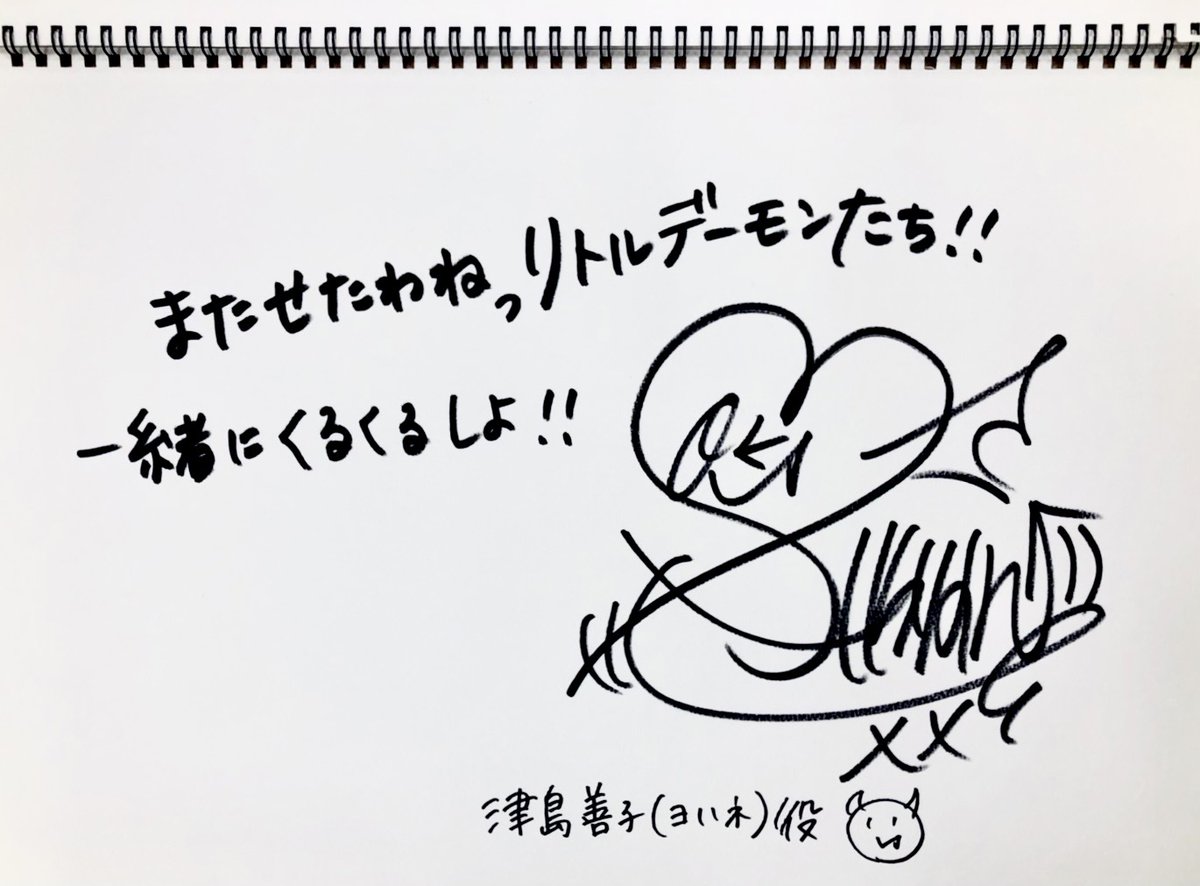 またせたわねっリトルデーモンたち!!
一緒にくるくるしよ!!
津島善子(ヨハネ)役